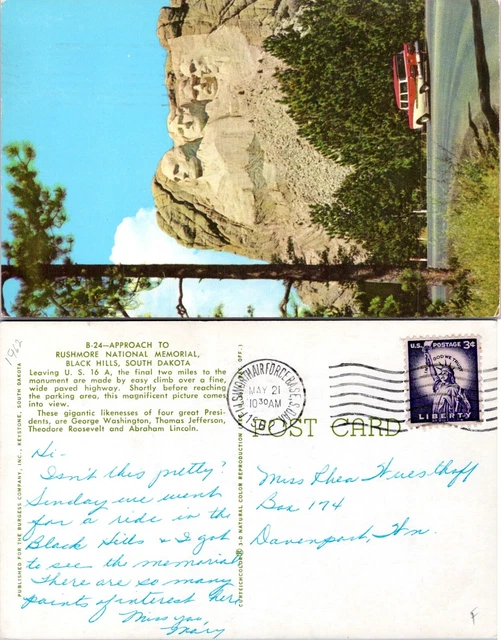 1962
B-24—APPROACH TO
RUSHMORE NATIONAL MEMORIAL,
BLACK HILLS, SOUTH DAKOTA
Leaving U. S. 16 A, the final two miles to the
monument are made by easy climb over a fine,
wide paved highway. Shortly before reaching
the parking area, this magnificent picture comes
into view.
These gigantic likenesses of four great Presi-
dents, are George Washington, Thomas Jefferson,
Theodore Roosevelt and Abraham Lincoln.
Hi-
Isn't this pretty?
Sunday we went
for a ride in the
Black Hills & I got
to see the memorial
There are so many
points of interest here
Miss you,
Mary
PUBLISHED FOR THE BURGESS COMPANY, INC., KEYSTONE, SOUTH DAKOTA
3-D NATURAL COLOR REPRODUCTION
ELLSWORTH AIR FORCE BASE, S. DAK.
MAY 21
10 AM
U.S. POSTAGE 3¢
IN GOD WE TRUST
LIBERTY
POST CARD
Miss Rhea
Box 174
Davenport, Wn.
F